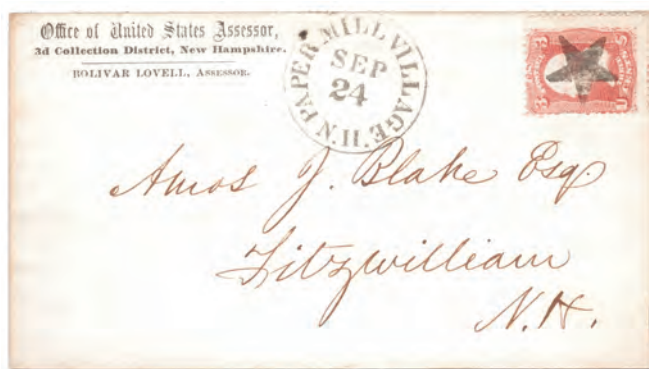 Office of United States Assessor,
3d Collection District, New Hampshire.
BOLIVAR LOVELL, ASSESSOR.
PAPER MILL VILLAGE, N.H.
SEP
24
Amos J. Blake Esq.
Fitzwilliam
N.H.